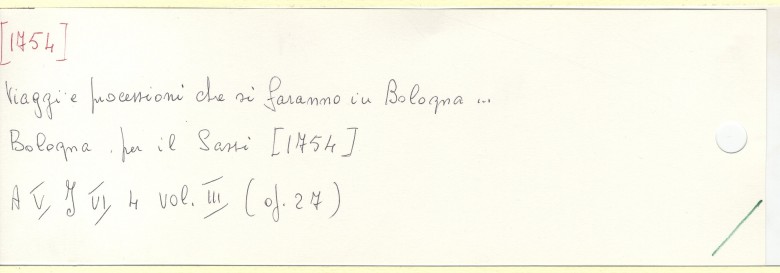 [1754]
Viaggi e processioni che si faranno in Bologna ...
Bologna. per il Sassi [1754]
A V, VI, 4 vol. III (of. 27)